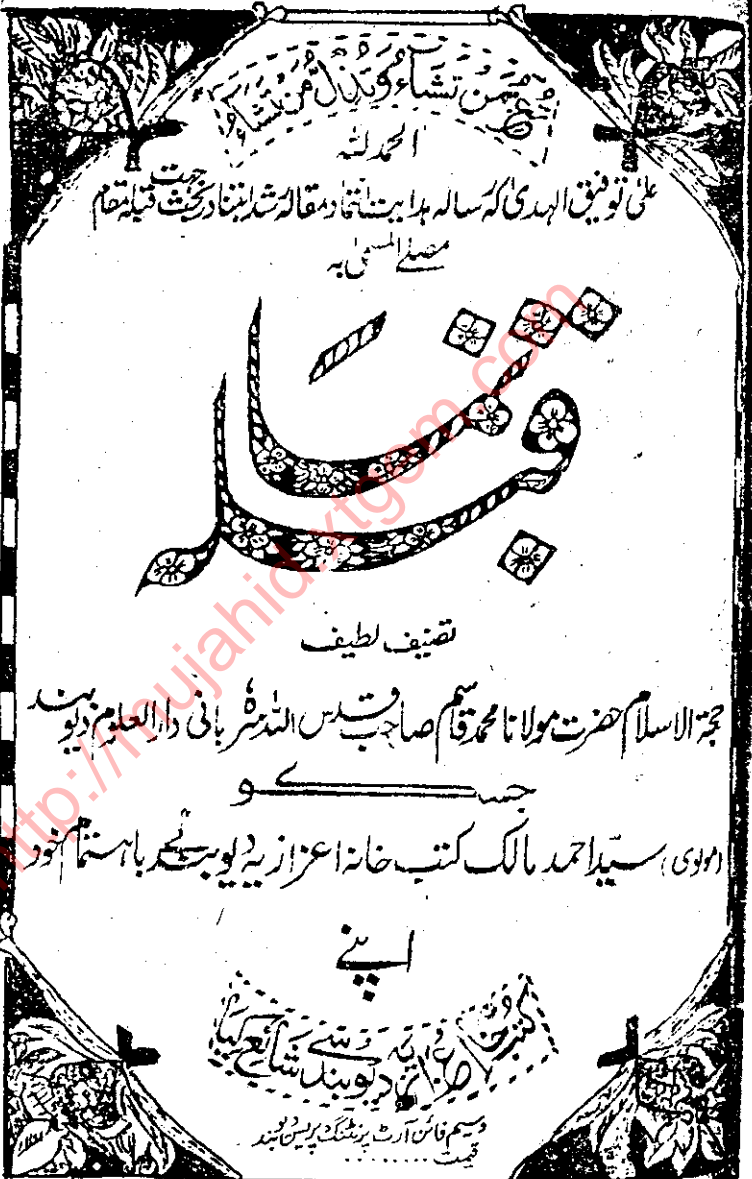 تعز من تشاء وتذل من تشاء
الحمد للہ
علیٰ توفیق الہدیٰ کہ رسالہ ہدایت انتما و مقالۂ رشد ابتنا در بحث جہت قبلہ مقام
مصلے المسمیٰ بہ
قبلہ نما
تصنیف لطیف
حجۃ الاسلام حضرت مولانا محمد قاسم صاحب قدس اللہ سرہ بانی دارالعلوم دیوبند
جس کو
(مولوی) سید احمد مالک کتب خانہ اعزازیہ دیوبند نے باہتمام خود
اپنے
کتب خانہ اعزازیہ دیوبند سے شائع کیا
وسیم فائن آرٹ پرنٹنگ پریس دیوبند
قیمت ........
http://mujahid.xtgem.com